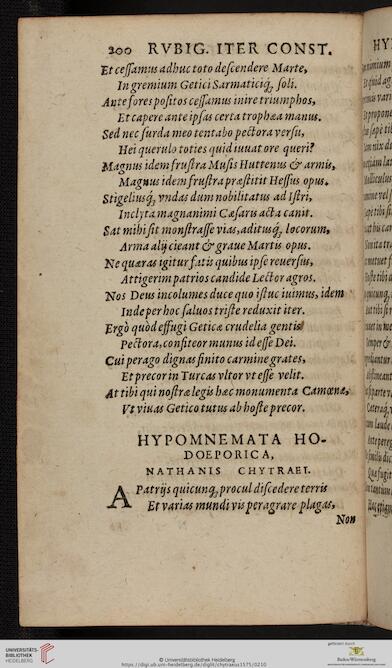 200 RVBIG. ITER CONST.
Et cessamus adhuc toto descendere Marte,
In gremium Getici Sarmaticiq́; soli.
Ante fores positos cessamus inire triumphos,
Et capere ante ipsas certa trophæa manus.
Sed nec surda meo tentabo pectora versu,
Hei querulo toties quid iuuat ore queri?
Magnus idem frustra Musis Huttenus & armis,
Magnus idem frustra præstitit Hessus opus.
Stigeliusq́; vndas dum nobilitatus ad Istri,
Inclyta magnanimi Cæsaris acta canit.
Sat mihi sit monstrasse vias, aditusq́; locorum,
Arma alij cieant & graue Martis opus.
Ne quæras igitur fatis quibus ipse reuersus,
Attigerim patrios candide Lector agros.
Nos Deus incolumes duce quo istuc iuimus, idem
Inde per hoc saluos triste reduxit iter.
Ergò quòd effugi Geticæ crudelia gentis
Pectora, confiteor munus id esse Dei.
Cui perago dignas finito carmine grates,
Et precor in Turcas vltor vt esse velit.
At tibi qui nostræ legis hæc monumenta Camœnæ,
Vt viuas Getico tutus ab hoste precor.
HYPOMNEMATA HO-
DOEPORICA,
NATHANIS CHYTRAEI.
A Patrijs quicunq́; procul discedere terris
Et varias mundi vis peragrare plagas,
Non
UNIVERSITÄTS-
BIBLIOTHEK
HEIDELBERG
© Universitätsbibliothek Heidelberg
https://digi.ub.uni-heidelberg.de/diglit/chytraeus1575/0210
gefördert durch
Baden-Württemberg